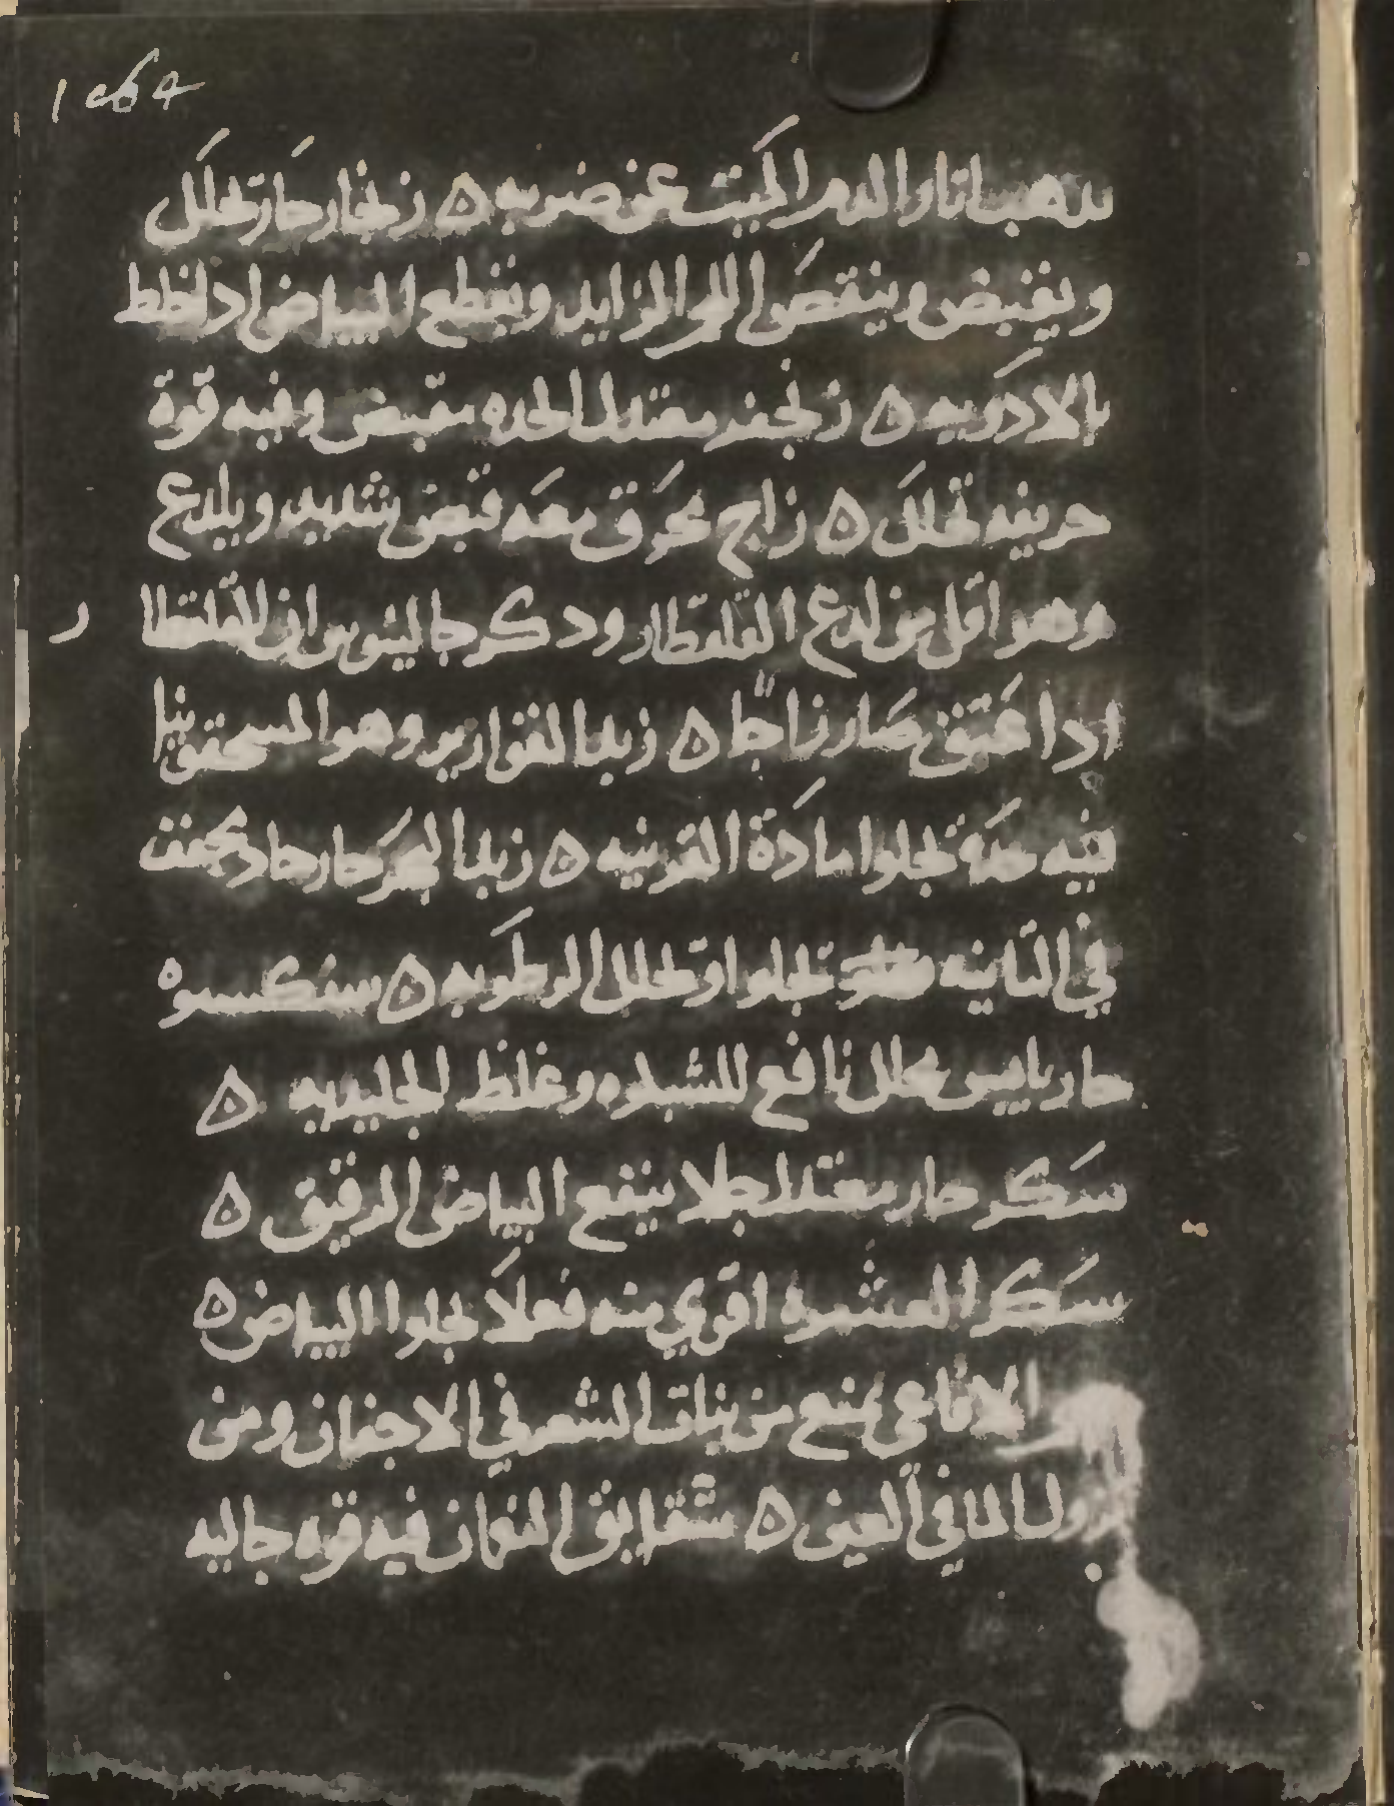 يذهب اثار الدم الميت عن ضربه ه زنجار حار تحلل
ويقبض وينقص اللحم الزايد ويقطع البياض اذا خلط
بالادويه ه زنجفر معتدل الحده يقبض وفيه قوة
حريفه تحلل ه زاج محرق معه قبض شديد ويلدع
وهو اقل من لدع القلقطار ودكر جالينوس ان للقلقطا
ر
ادا عتق صار زاجا ه زبد القوارير وهو المسحقونيا
فيه حدة تجلوا مادة القرنيه ه زبد البحر حار حاد يجفف
في الثانيه تجلوا وتحلل الرطوبه ه سنكسبوه
حار يابس محلل نافع للشبكره وغلظ الجليديه ه
سكر حار معتدل جلا ينفع البياض الرقيق ه
سكر العشر اقوي منه فعلا يجلوا البياض ه
الافاعي يمنع من نبات الشعر في الاجفان ومن
الما في العين ه شقايق النعمان فيه قوه جاليه